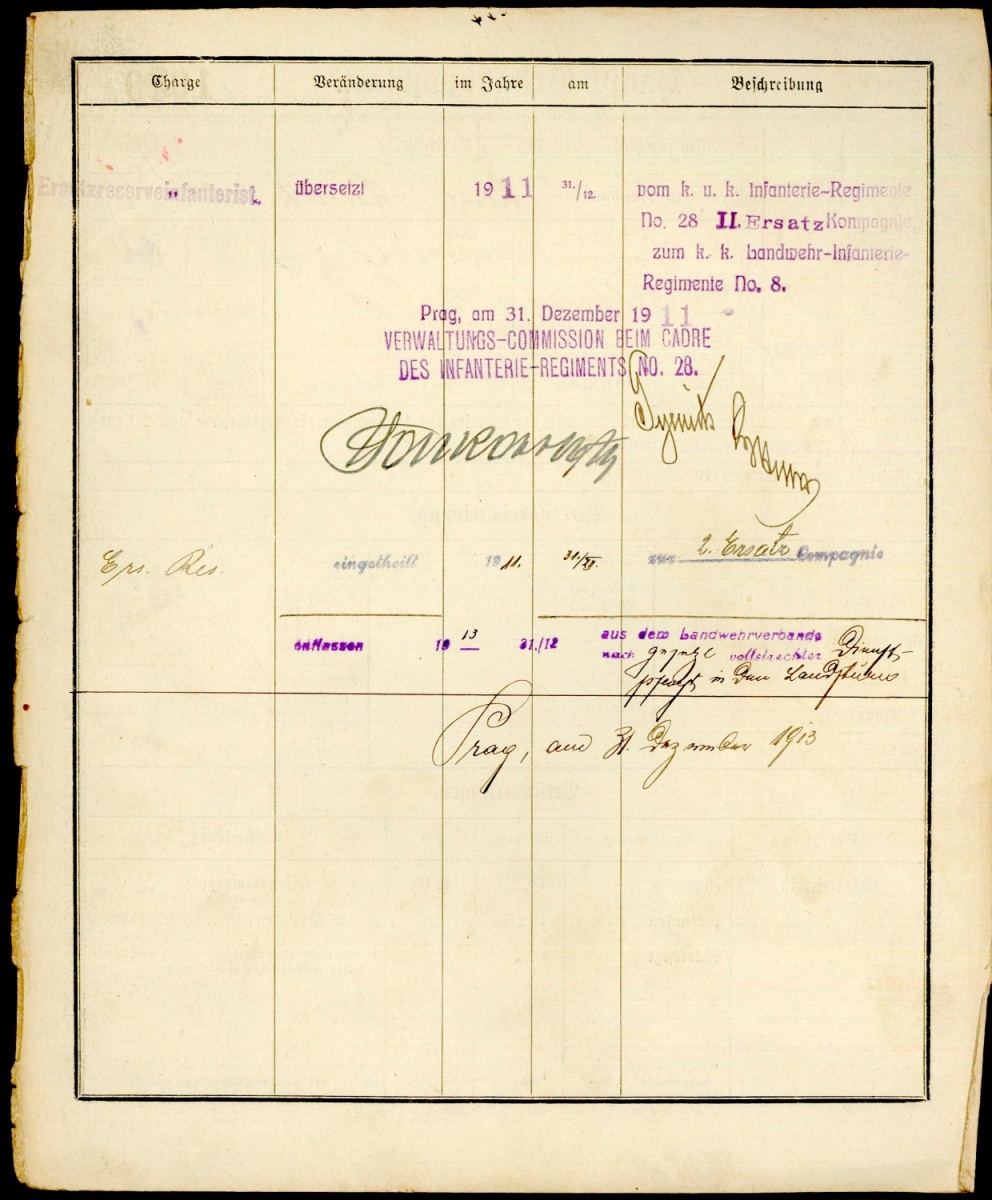 Charge Veränderung im Jahre am Beschreibung
Ersatzreserveinfanterist. übersetzt 1911 31./12. vom k. u. k. Infanterie-Regimente
No. 28 II. Ersatz Kompagnie
zum k. k. Landwehr-Infanterie-
Regimente No. 8.
Prag, am 31. Dezember 1911
VERWALTUNGS-COMMISSION BEIM CADRE
DES INFANTERIE-REGIMENTS NO. 28.
Ers. Res. eingetheilt 1911. 31./XII. zur 2. Ersatz Compagnie
entlassen 1913 31./12 aus dem Landwehrverbande
nach vollstreckter Dienst-
pflicht in den Landsturm
Prag, am 31. Dezember 1913